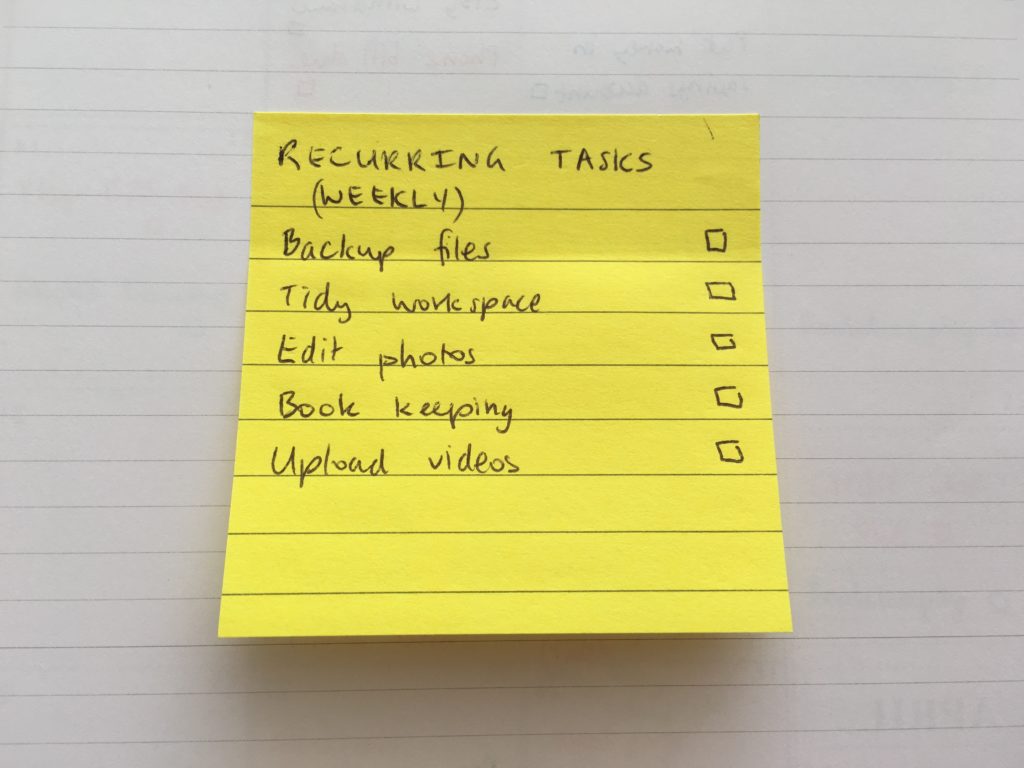 RECURRING TASKS
(WEEKLY)
Backup files
Tidy workspace
Edit photos
Book keeping
Upload videos